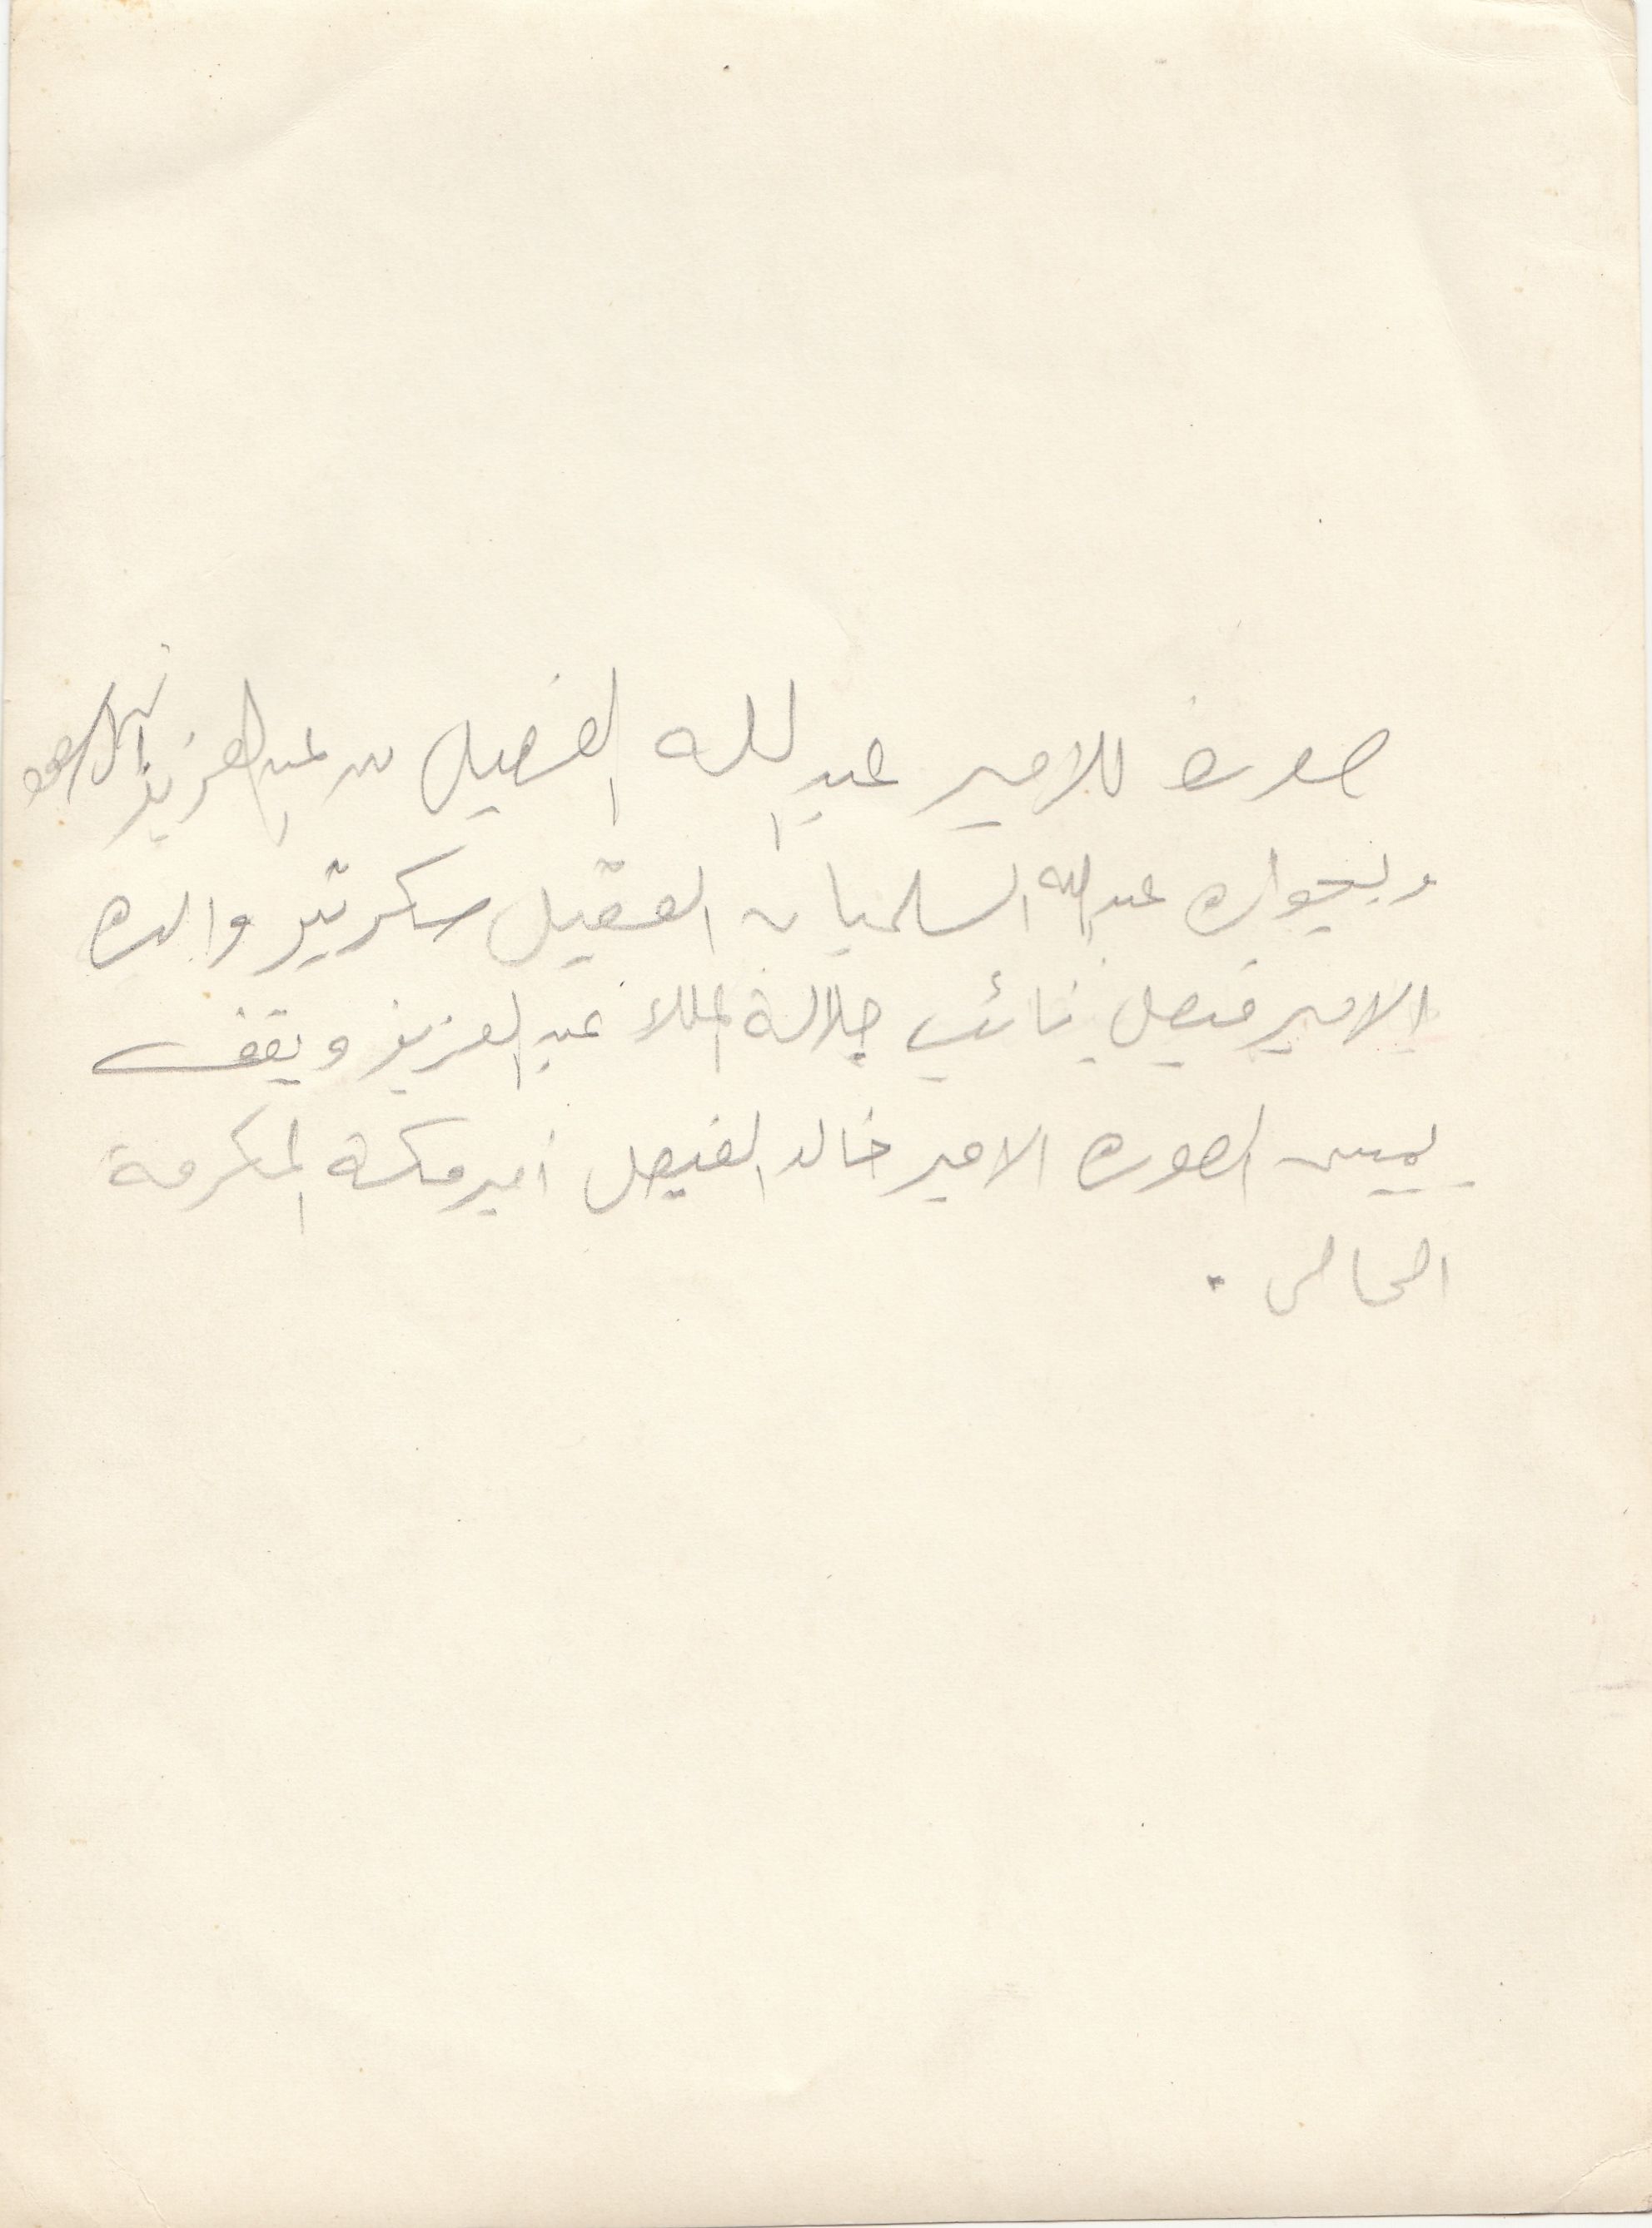 صورة للامير عبد الله الفيصل بن عبد العزيز آل سعود
وبجواره عبد الله السليمان العقيل سكرتير والده
الامير فيصل نائب جلالة الملك عبد العزيز ويقف
يمين الصوره الامير خالد الفيصل أمير مكة المكرمة
الحالى .